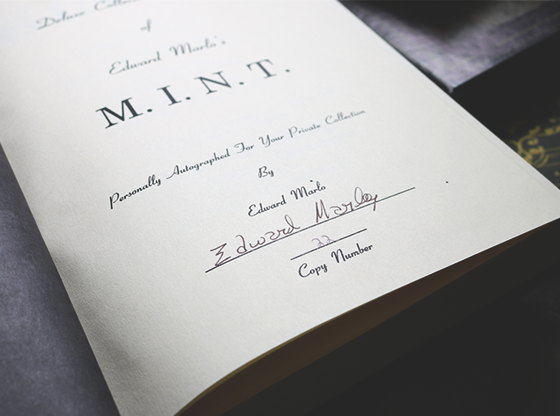 Deluxe
of
Edward Marlo's
M.I.N.T.
Personally Autographed For Your Private Collection
By
Edward Marlo
Edward
22
Copy Number